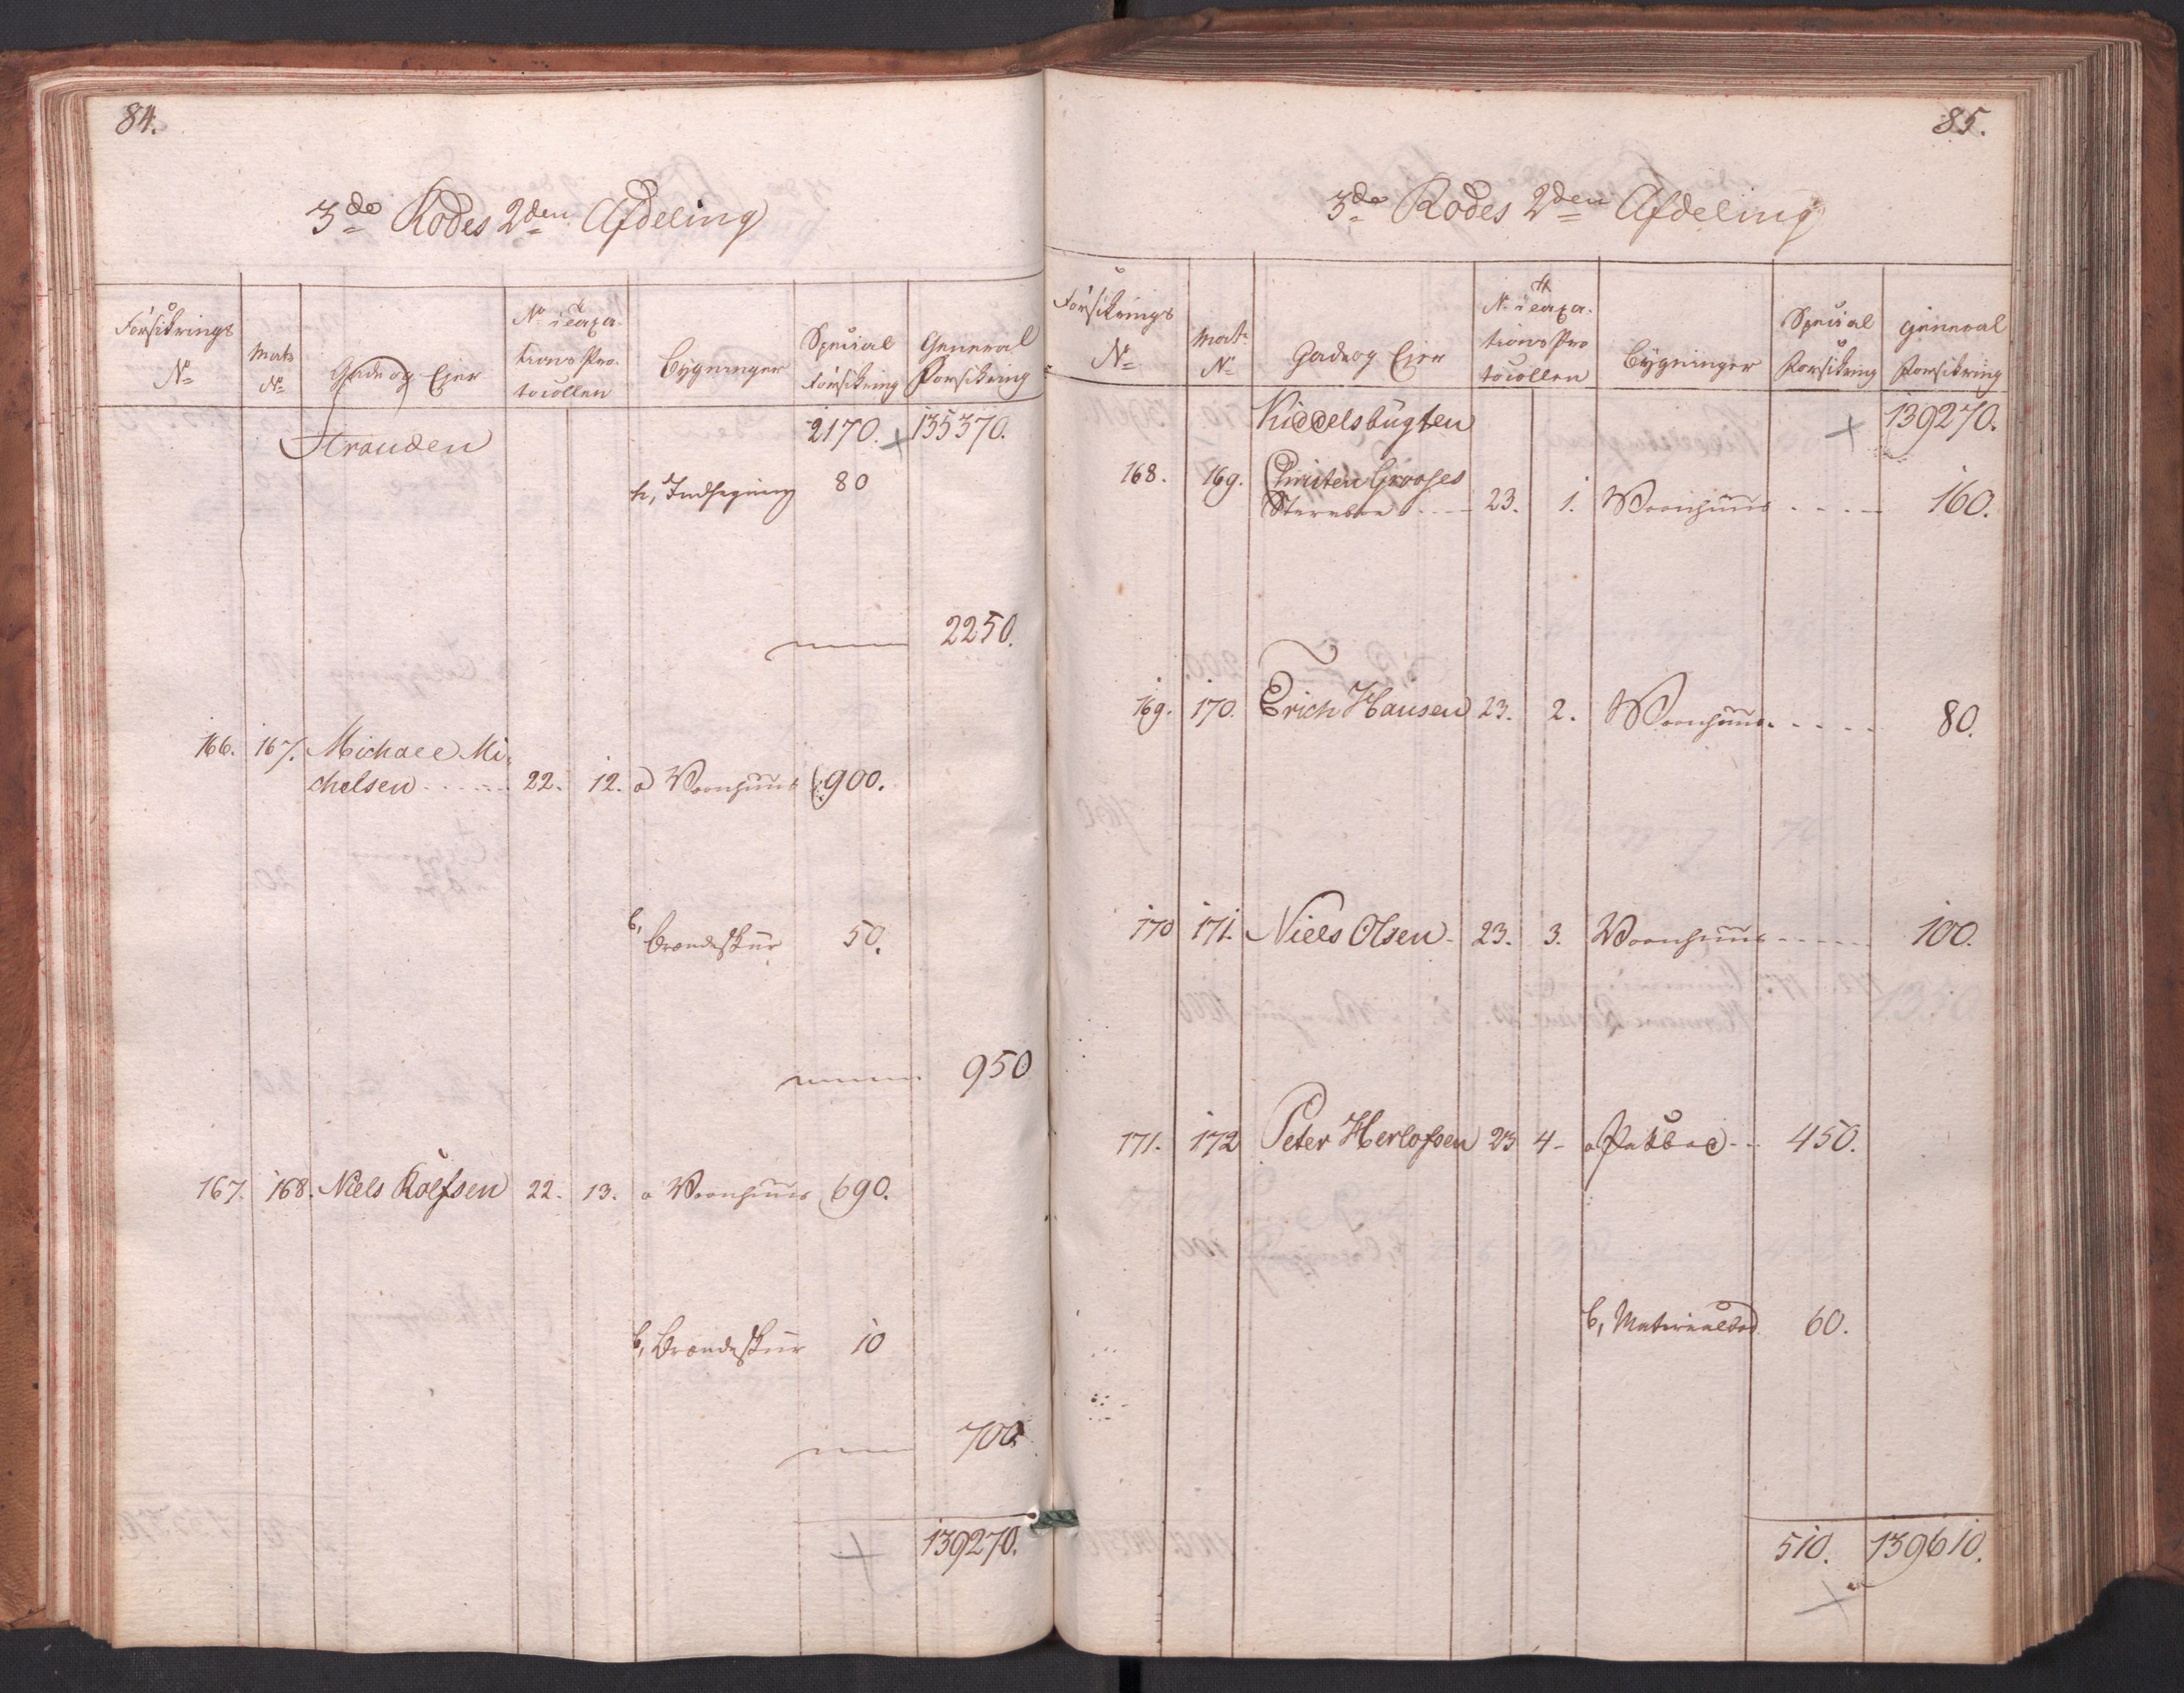 84.
3de Rodes 2den Afdeling
Forsikrings No
Matr No
Gade og Ejer
No i Taxa-
tions Pro-
tocollen
Bygninger
Special
Forsikring
General
Forsikring
Stranden 2170. 135370.
h, Indhegning 80
2250.
166. 167. Michael Mi-
chelsen 22. 12. a Vaanhuus 900.
b, Brændeskuur 50.
950
167. 168. Niels Rolfsen 22. 13. a Vaanhuus 690.
b, Brændeskuur 10
700.
139270.
85.
3de Rodes 2den Afdeling
Forsikrings
No
Matr
No
Gade og Ejer
No i Taxa-
tions Pro
tocollen
Bygninger
Special
Forsikring
General
Forsikring
Kiddelsbugten 139270.
168. 169. Christen Grooses
23. 1. Vaanhuus 160.
169. 170. Erich Hansen 23. 2. Vaanhuus 80.
170 171. Niels Olsen 23. 3. Vaanhuus 100.
171. 172 Peter Herlofsen 23 4 a Pakboe 450.
b, Materialbod 60.
510. 139610.